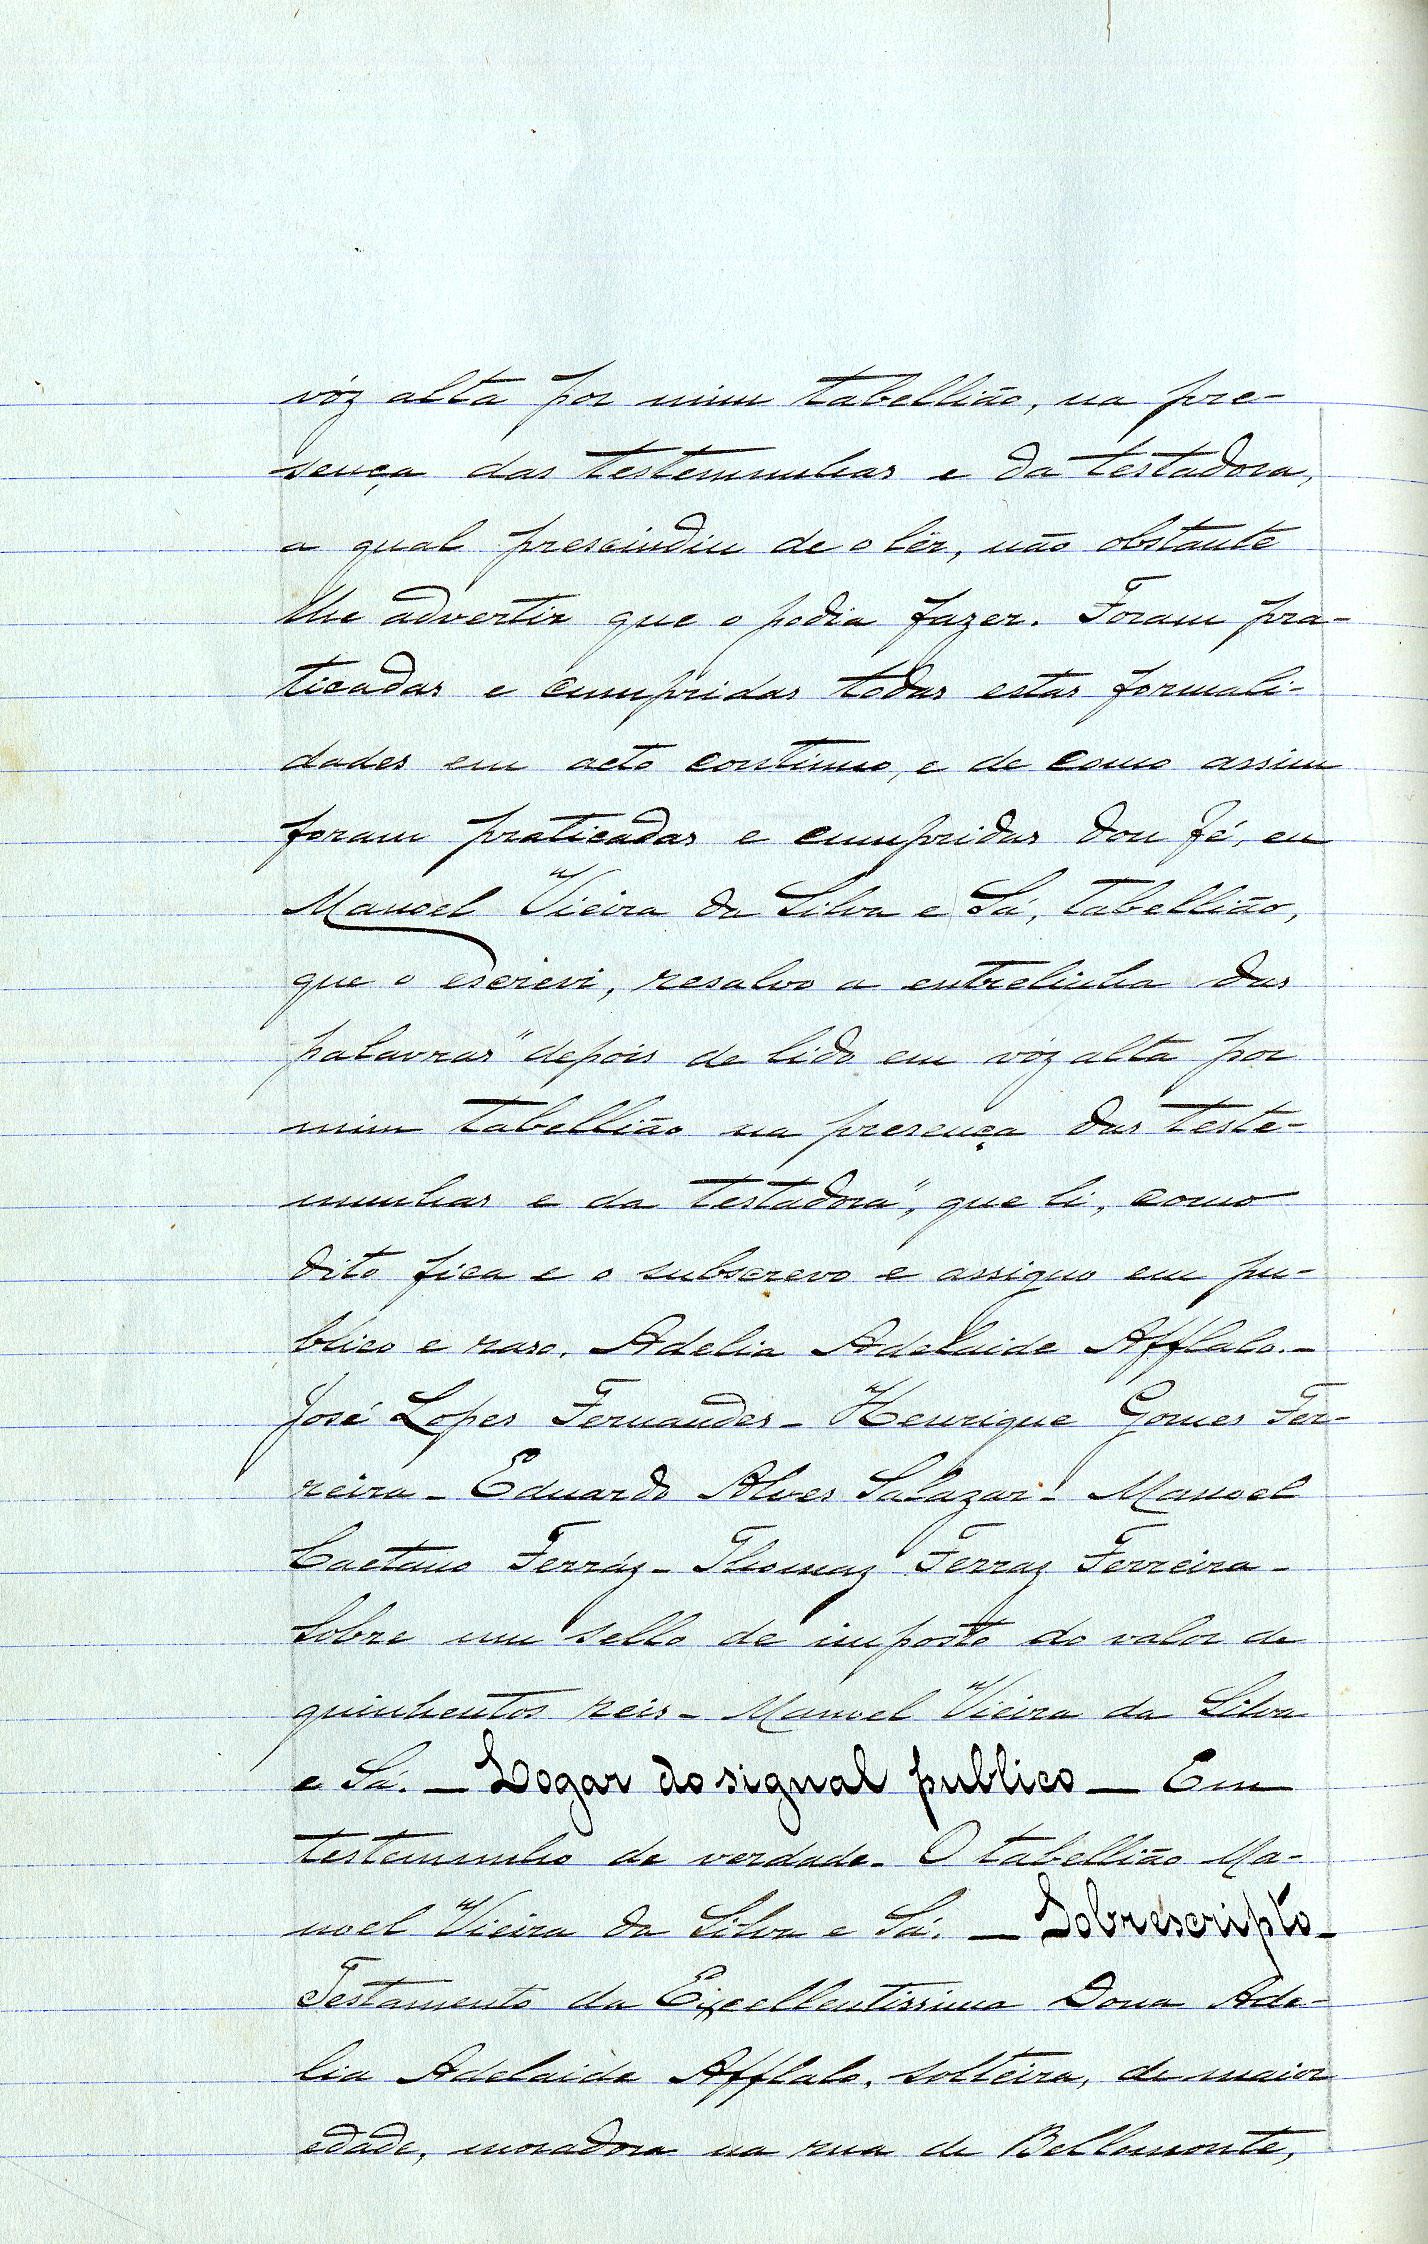 vóz alta por mim tabellião, na pre-
sença das testemunhas e da testadora,
a qual prescindiu de o lêr, não obstante
lhe advertir que o podia fazer. Foram pra-
ticadas e cumpridas todas estas formali-
dades em acto continuo, e de como assim
foram praticadas e cumpridas dou fé, eu
Manoel Vieira da Silva e Sá, tabellião,
que o escrevi, resalvo a entrelinha das
palavras "depois de lido em vóz alta por
mim tabellião na presença das teste-
munhas e da testadora", que li, como
dito fica e o subscrevo e assigno em pu-
blico e raso. Adelia Adelaide Afflalo. -
José Lopes Fernandes - Henrique Gomes Fer-
reira - Eduardo Alves Salazar - Manoel
Caetano Ferráz - Thomaz Ferraz Ferreira -
Sobre um sello de imposto do valor de
quinhentos reis - Manoel Vieira da Silva
e Sá. - Logar do signal publico - Em
testemunho de verdade. O tabellião Ma-
noel Vieira da Silva e Sá. - Sobrescripto -
Testamento da Excellentissima Dona Ade-
lia Adelaide Afflalo, solteira, de maior
edade, moradora na rua de Bellomonte,